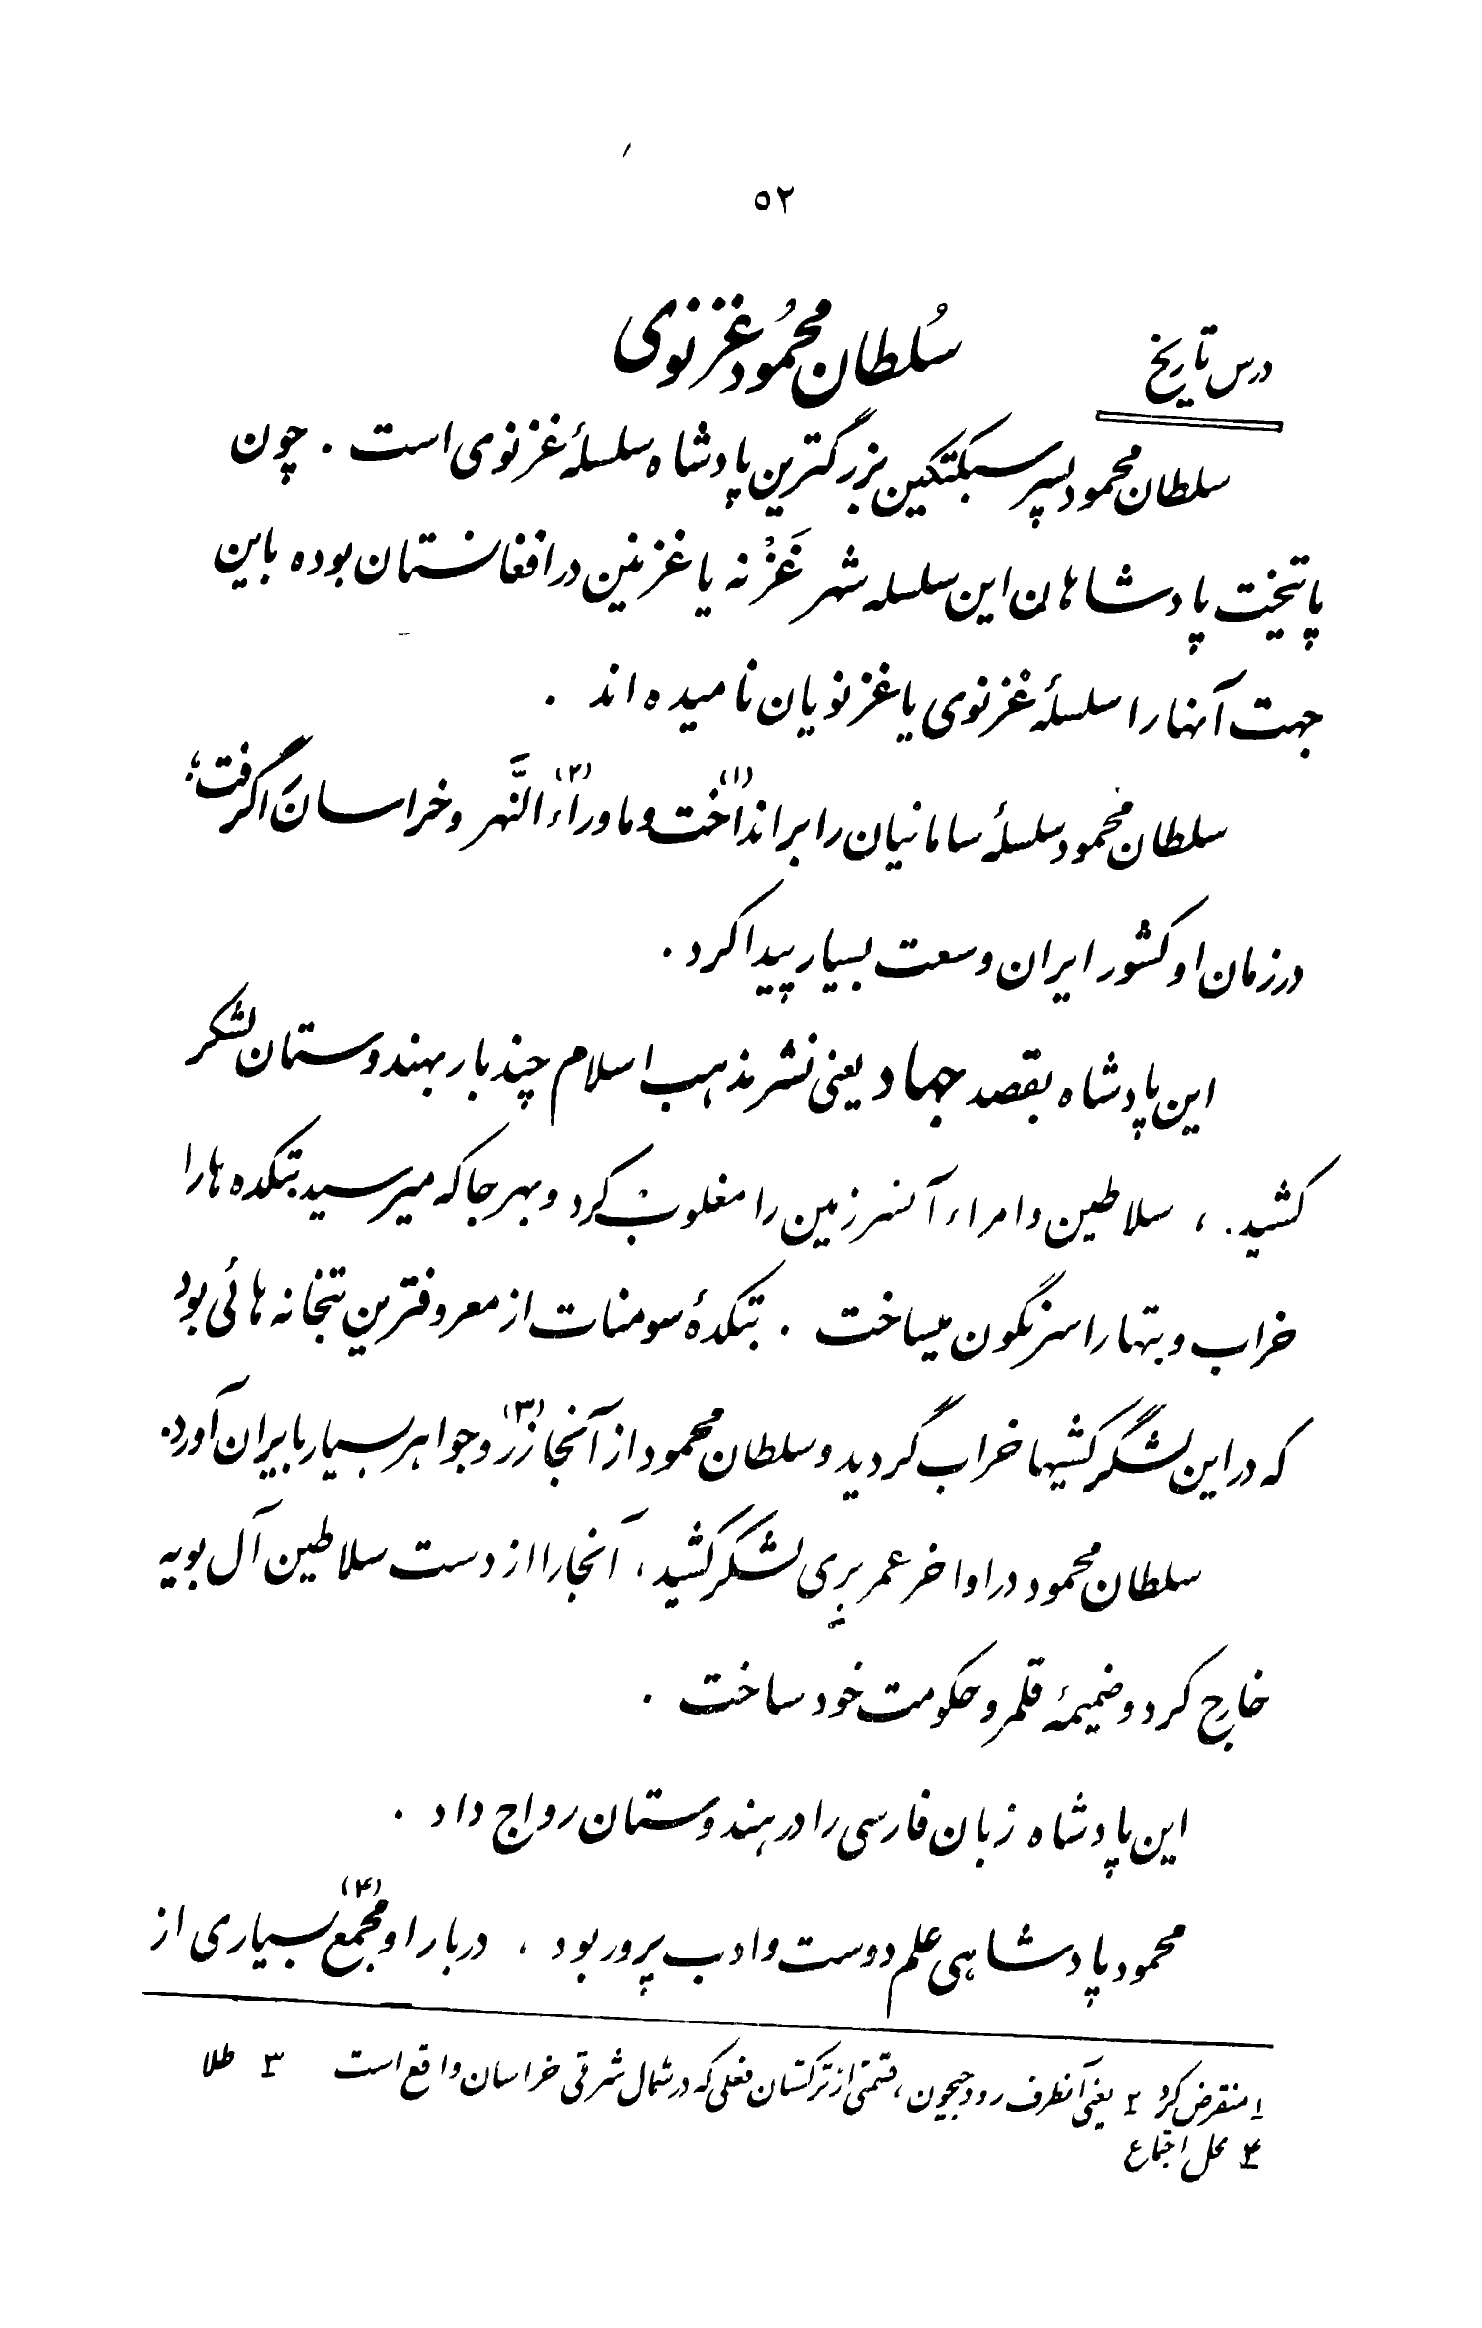 ۵۲
درس تاریخ
سُلطان محمُود غزنوی
سلطان محمود پسر سبکتکین بزرگترین پادشاه سلسلهٔ غزنوی است . چون
پایتخت پادشاهان این سلسله شهر غَزْنه یا غزنین در افغانستان بوده باین
جهت آنها را سلسلهٔ غزنوی یا غزنویان نامیده اند .
سلطان محمود سلسلهٔ سامانیان را برانداخت (۱) و ماوراءالنَّهر (۲) و خراسان را گرفت ؛
در زمان او کشور ایران وسعت بسیار پیدا کرد .
این پادشاه بقصد جهاد یعنی نشر مذهب اسلام چند بار بهندوستان لشکر
کشید . ، سلاطین و امراء آنسرزمین را مغلوب کرد و بهر جا که میرسید بتکده ها را
خراب و بتها را سرنگون میساخت . بتکدهٔ سومنات از معروفترین بتخانه هائی بود
که در این لشگر کشیها خراب گردید و سلطان محمود از آنجا زر (۳) و جواهر بسیار بایران آورد .
سلطان محمود در اواخر عمر بری لشکر کشید ، آنجا را از دست سلاطین آل بویه
خارج کرد و ضمیمهٔ قلمرو حکومت خود ساخت .
این پادشاه زبان فارسی را در هندوستان رواج داد .
محمود پادشاهی علم دوست و ادب پرور بود ، دربار او مجمع (۴) بسیاری از
۱ منقرض کرد ۲ یعنی آنطرف رود جیحون ، قسمتی از ترکستان فعلی که در شمال شرقی خراسان واقع است ۳ طلا
۴ محل اجتماع